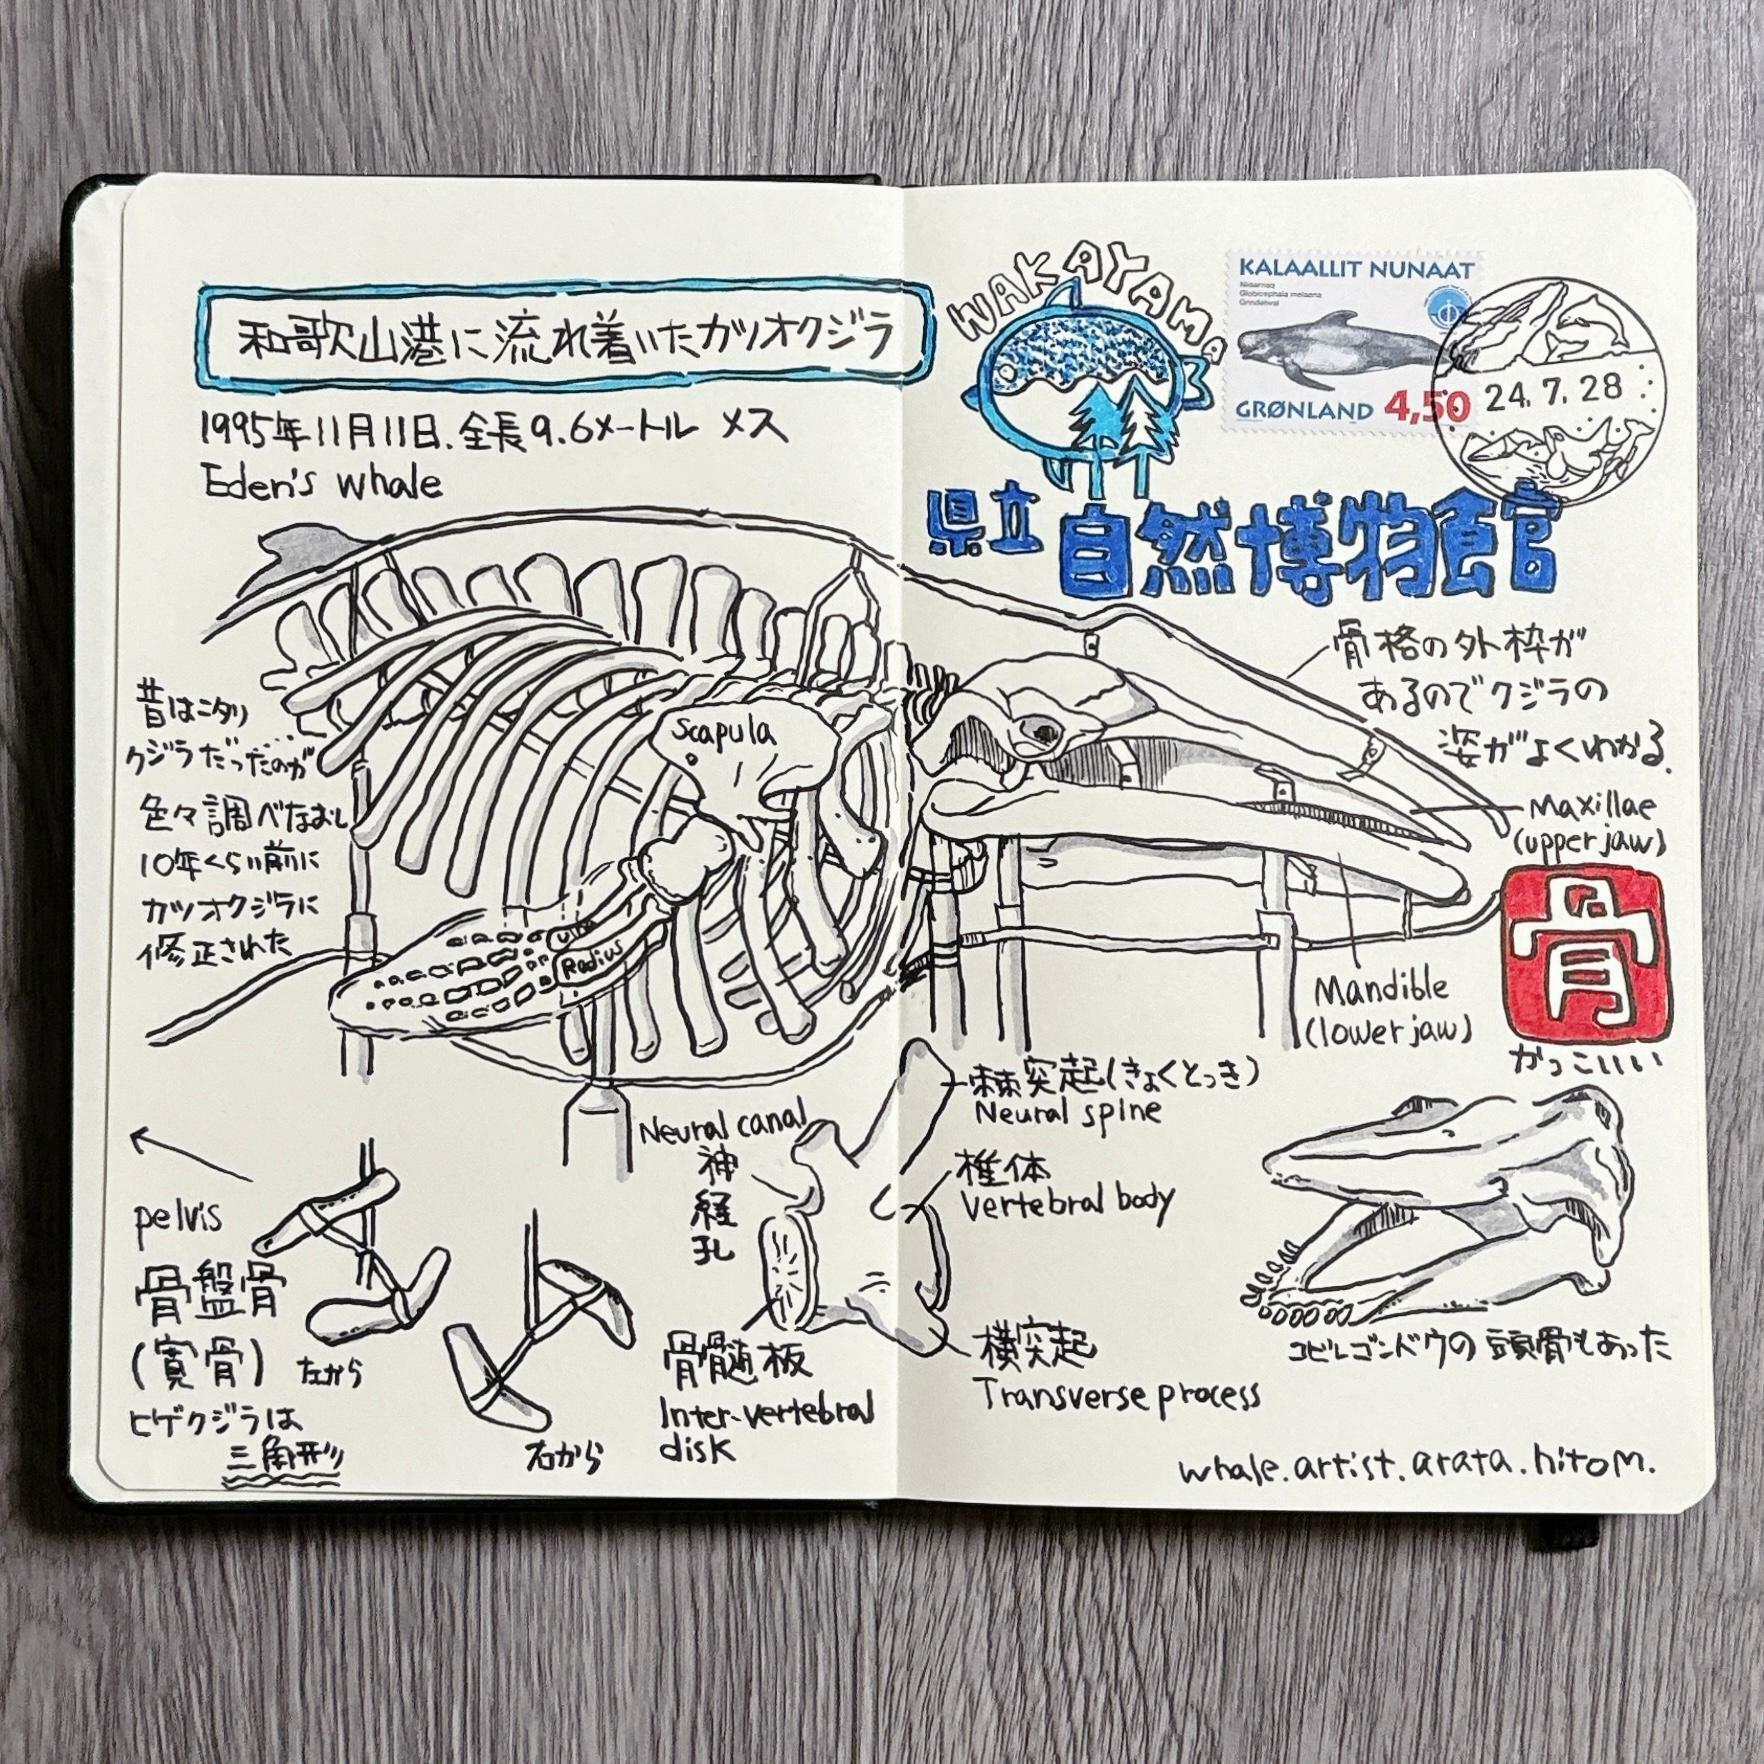 和歌山港に流れ着いたカツオクジラ
1995年11月11日.全長9.6メートル メス
Eden's whale
WAKAYAMA
県立自然博物館
KALAALLIT NUNAAT
Niisarnaq
Globicephala melaena
Grindehval
GRØNLAND 4,50
24.7.28
骨格の外枠が
あるのでクジラの
姿がよくわかる.
昔はニタリ
クジラだったのが…
色々調べなおし
10年くらい前に
カツオクジラに
修正された
Scapula
Ulna
Radius
Maxillae
(upper jaw)
Mandible
(lower jaw)
骨
かっこいい
pelvis
骨盤骨
(寛骨)
ヒゲクジラは
三角形
左から
右から
Neural canal
神
経
孔
棘突起(きょくとっき)
Neural spine
椎体
vertebral body
骨髄板
Inter-vertebral
disk
横突起
Transverse process
コビレゴンドウの頭骨もあった
whale.artist.arata.hitom.